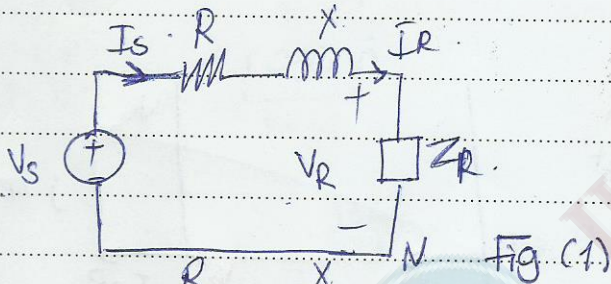 Is R X IR
+
+
Vs VR ZR.
-
R X N Fig (1)